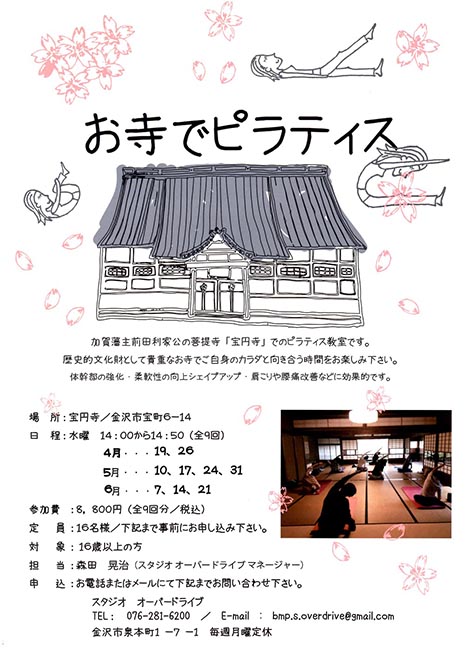 お寺でピラティス
加賀藩主前田利家公の菩提寺「宝円寺」でのピラティス教室です。
歴史的文化財として貴重なお寺でご自身のカラダと向き合う時間をお楽しみ下さい。
体幹部の強化・柔軟性の向上シェイプアップ・肩こりや腰痛改善などに効果的です。
場　所：宝円寺／金沢市宝町6-14
日　程：水曜　14：00から14：50（全9回）
4月・・・19、26
5月・・・10、17、24、31
6月・・・7、14、21
参加費　：8，800円（全9回分／税込）
定　員：16名様／下記まで事前にお申し込み下さい。
対　象：16歳以上の方
担　当：森田　晃治（スタジオ オーバードライブ マネージャー）
申　込：お電話またはメールにて下記までお問い合わせ下さい。
スタジオ　オーバードライブ
TEL：　076-281-6200　／　E-mail　：　bmp.s.overdrive@gmail.com
金沢市泉本町1-7-1　毎週月曜定休